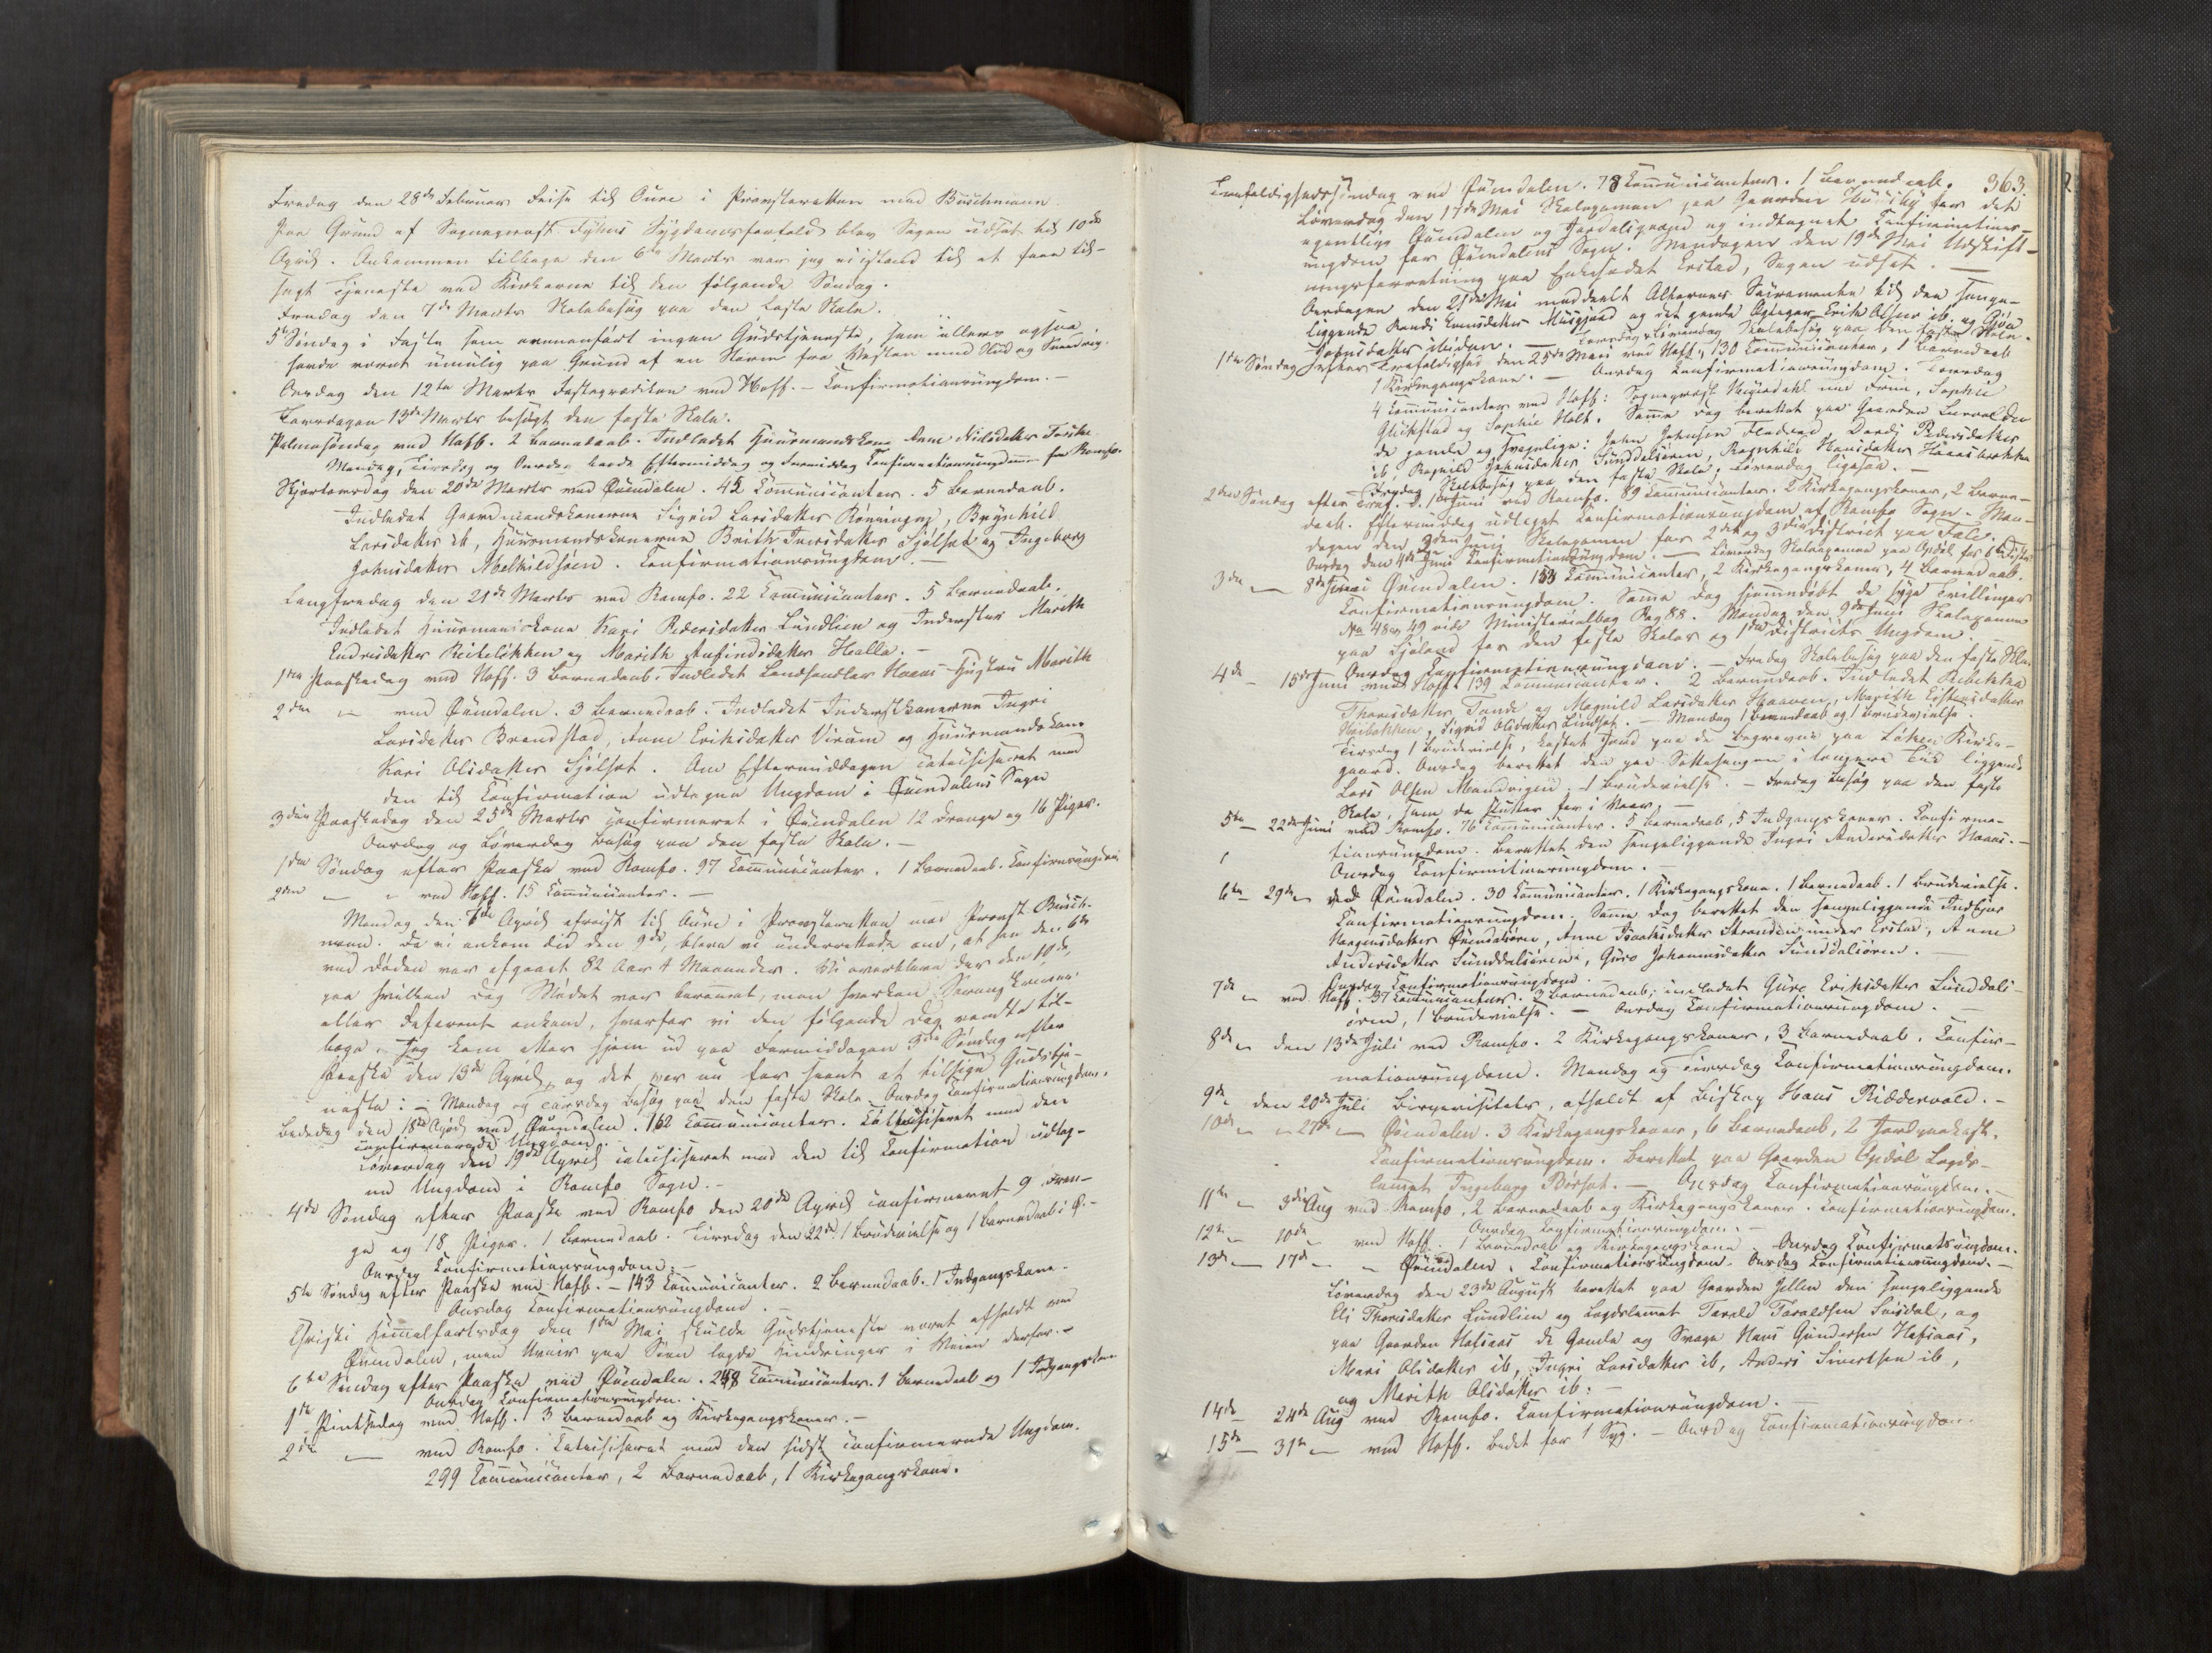 Fredag den 28de Februar Reise til Aure i Provsteretten med Buschmann.
Paa Grund af Sogneprest Tyhus Sygdomsforfald blev Sagen udsat til 10de
April. Ankommen tilbage den 6te Marts var jeg ei istand til at faae til-
sagt Tjeneste ved Kirkerne til den følgende Søndag.
Fredag den 7de Marts Skolebesøg paa den faste Skole.
5te Søndag i Faste som ovenanført ingen Gudstjeneste, som ellers ogsaa
havde været umulig paa Grund af en Storm fra Vesten med Slud og
Onsdag den 12te Marts Fasteprædiken ved Hoff. - Confirmationsungdom. -
Torsdagen 13de Marts besøgt den faste Skole.
Palmesøndag ved Hoff. 2 Barnedaab. Indledet Huusmandskone Ane Nielsdatter
Mandag, Tirsdag og Onsdag baade Eftermiddag og Formiddag Confirmationsungdommen fra Romfo.
Skjærtorsdag den 20de Marts ved Øxendalen. 42 Communicanter. 5 Barnedaab.
Indledet Gaardmandskonerne Sigrid Larsdatter Rønningen, Brynhild
Larsdatter ib, Huusmandskonerne Brith Iversdatter Sjølset og Ingeborg
Johnsdatter. Confirmationsungdom. -
Langfredag den 21de Marts ved Romfo. 22 Communicanter. 5 Barnedaab.
Indledet Huusmandskone Kari Pedersdatter Lundlien og Inderster Marith
Endresdatter og Marith Arfindsdatter Halle. -
1ste Paaskedag ved Hoff. 3 Barnedaab. Indledet Landhandler Haaes Hustru Marith
2den - ved Øxendalen. 3 Barnedaab. Indledet Inderstkonerne Ingri
Larsdatter Brandstad, Anne Eriksdatter Virum og Huusmandskone
Kari Olsdatter Sjølset. Om Eftermiddagen catechiseret med
den til Confirmation udtagne Ungdom i Øxendalens Sogn
3die Paaskedag den 25de Marts confirmeret i Øxendalen 12 Drenge og 16 Piger.
Onsdag og Løverdag Besøg paa den faste Skole. -
1ste Søndag efter Paaske ved Romfo. 97 Communicanter. 1 Barnedaab. Confirmungdom.
2den - - ved Hoff. 15 Communicanter. -
Mandag den 7de April afreist til Aure i Provsteretten med Provst Busch-
mann. Da vi ankom did den 9de, bleve vi underrettede om, at han den 6te
ved Døden var afgaaet 82 Aar 4 Maaneder. Vi overbleve der den 10de,
paa hvilken Dag Mødet var berammet, men hverken
eller Deferent ankom, hvorfor vi den følgende Dag vendte til-
bage. Jeg kom atter hjem ud paa Formiddagen 3die Søndag efter
Paaske den 13de April, og det var nu for seent at tilsige Gudstje-
neste: - Mandag og Torsdag Besøg paa den faste Skole. Onsdag Confirmationsungdom.
Bededag den 18de April ved Øxendalen. 162 Communicanter. Catechiseret med den
confirmerede Ungdom.
Løverdag den 19de April catechiseret med den til Confirmation udtag-
ne Ungdom i Romfo Sogn. -
4de Søndag efter Paaske ved Romfo den 20de April confirmeret 9 Dren-
ge og 18 Piger. 1 Barnedaab. Tirsdag den 22de 1 Brudevielse og 1 Barnedaab i Ø. -
Onsdag Confirmationsungdom: -
5te Søndag efter Paaske ved Hoff. - 143 Communicanter. 2 Barnedaab. 1 Indgangskone.
Onsdag Confirmationsungdom. -
Christi Himmelfartsdag den 1ste Mai skulde Gudstjeneste været afholdt ved
Øxendalen, men Uveir paa Søen lagde Hindringer i Veien derfor. -
6te Søndag efter Paaske ved Øxendalen. Communicanter. 1 Barnedaab og 1 Indgangskone
Onsdag Confirmationsungdom.
1ste Pintsedag ved Hoff. 3 Barnedaab og Kirkegangskoner. -
2den - ved Romfo. Catechiseret med den sidst confirmerede Ungdom.
299 Communicanter, 2 Barnedaab, 1 Kirkegangskone.
363.
Trefoldighedssøndag ved Øxendalen. 78 Communicanter. 1 Barnedaab.
Løverdag den 17de Mai Skoleexamen paa Gaarden Huusby for det
egentlige Øxendalen og Jordalsgrænd og indtegnet Confirmations-
ungdom for Øxendalens Sogn. Mandagen den 19de Mai Udskift-
ningsforretning paa Enkesædet Erstad, Sagen udsat. -
Onsdagen den 21de Mai meddeelt Alterens Sacramente til den senge-
liggende Randi Musgjerd og det gamle Ægtepar Erik Olsen ib. og
Johnsdatter. - Torsdag og Løverdag Skolebesøg paa den faste Skole.
1ste Søndag efter Trefoldighed den 25de Mai ved Hoff, 130 Communicanter, 1 Barnedaab
1 Kirkegangskone. - Onsdag Confirmationsungdom. Torsdag
4 Communicanter ved Hoff: Sogneprest med Frue, Sophie
Glückstad og Sophie Holt. Samme Dag berettet paa Gaarden
de gamle og svagelige: John Johnsen, Dordi Pedersdatter
ib, Ragnild Johnsdatter Sunddalsøren, Ragnhild Hansdatter
Fredag Skolebesøg paa den faste Skole, Løverdag ligesaa. -
2den Søndag efter Tref. d. 1ste Juni ved Romfo. 89 Communicanter. 2 Kirkegangskoner, 2 Barne-
daab. Eftermiddag udtaget Confirmationsungdom af Romfo Sogn. Man-
dagen den 2den Juni Skoleexamen for 2det og 3die District paa Fale.
Onsdag den 4de Juni Confirmationsungdom. - Løverdag Skoleexamen paa Opdøl for 6te District
3die - 8de Juni Øxendalen. 153 Communicanter, 2 Kirkegangskoner, 4 Barnedaab.
Confirmationsungdom. Samme Dag hjemmedøbt de syge Tvillinger
No 48 og 49 vide Ministerialbog Pag 88. Mandag den 9de Juni Skoleexamen
paa for den faste Skoles og 1ste Districts Ungdom. -
Onsdag Confirmationsungdom. - Fredag Skolebesøg paa den faste Skole.
4de - 15de Juni ved Hoff. 139 Communicanter. 2 Barnedaab. Indledet Rebekka
Thoresdatter Tande og Magnild Larsdatter, Marith Eistensdatter
, Sigrid Olsdatter Lindset. - Mandag 1 Barnedaab og 1 Brudevielse.
Tirsdag 1 Brudevielse, kastet Jord paa de begravne paa Løken Kirke-
gaard. Onsdag berettet den paa Sottesengen i længere Tid liggende
Lars Olsen. 1 Brudevielse. - Fredag Besøg paa den faste
Skole, som da slutter for i Vaar. -
5te - 22de Juni ved Romfo. 76 Communicanter. 5 Barnedaab, 5 Indgangskoner. Confirma-
tionsungdom. Berettet den sengeliggende Ingri Andersdatter Haaes. -
Onsdag Confirmationsungdom.
6te - 29de - ved Øxendalen. 30 Communicanter. 1 Kirkegangskone. 1 Barnedaab. 1 Brudevielse.
Confirmationsungdom. Samme Dag berettet den sengeliggende Indbjør
Øxendalsøren, Anne Isaaksdatter Stranden under Erstad, Anne
Andersdatter Sunddalsøren, Guro Johannesdatter Sunddalsøren. -
Onsdag Confirmationsungdom. -
7de - ved Hoff. 37 Communicanter. 3 Barnedaab; indledet Guro Eriksdatter Sunddals-
øren, 1 Brudevielse. - Onsdag Confirmationsungdom. -
8de - den 13de Juli ved Romfo. 2 Kirkegangskoner, 3 Barnedaab. Confir-
mationsungdom. Mandag og Tirsdag Confirmationsungdom.
9de - den 20de Juli Bispevisitats, afholdt af Biskop Hans Riddervold. -
10de - - 27de - Øxendalen. 3 Kirkegangskoner, 6 Barnedaab, 2 Jordpaakast.
Confirmationsungdom. Berettet paa Gaarden Opdøl Lægds-
lemmet Ingeborg Børset. - Onsdag Confirmationsungdom. -
11te - 3die Aug ved Romfo, 2 Barnedaab og Kirkegangskoner. Confirmationsungdom.
Onsdag Confirmationsungdom. -
12te - 10de - ved Hoff. 1 Barnedaab og Kirkegangskone. - Onsdag Confirmatsungdom.
13de - 17de - - Øxendalen. Confirmationsungdom. Onsdag Confirmationsungdom. -
Løverdag den 23de August berettet paa Gaarden Jellen den sengeliggende
Eli Thoresdatter Lundlien og Lægdslemmet Tarald Taraldsen, og
paa Gaarden Hafsaas de Gamle og Svage Hans Gundersen Hafsaas,
Mari Olsdatter ib, Ingri Larsdatter ib, Anders Sivertsen ib,
og Marith Olsdatter ib: -
14de - 24de Aug ved Romfo. Confirmationsungdom. -
15de - 31te - ved Hoff. Bedet for 1 Syg. - Onsdag Confirmationsungdom.